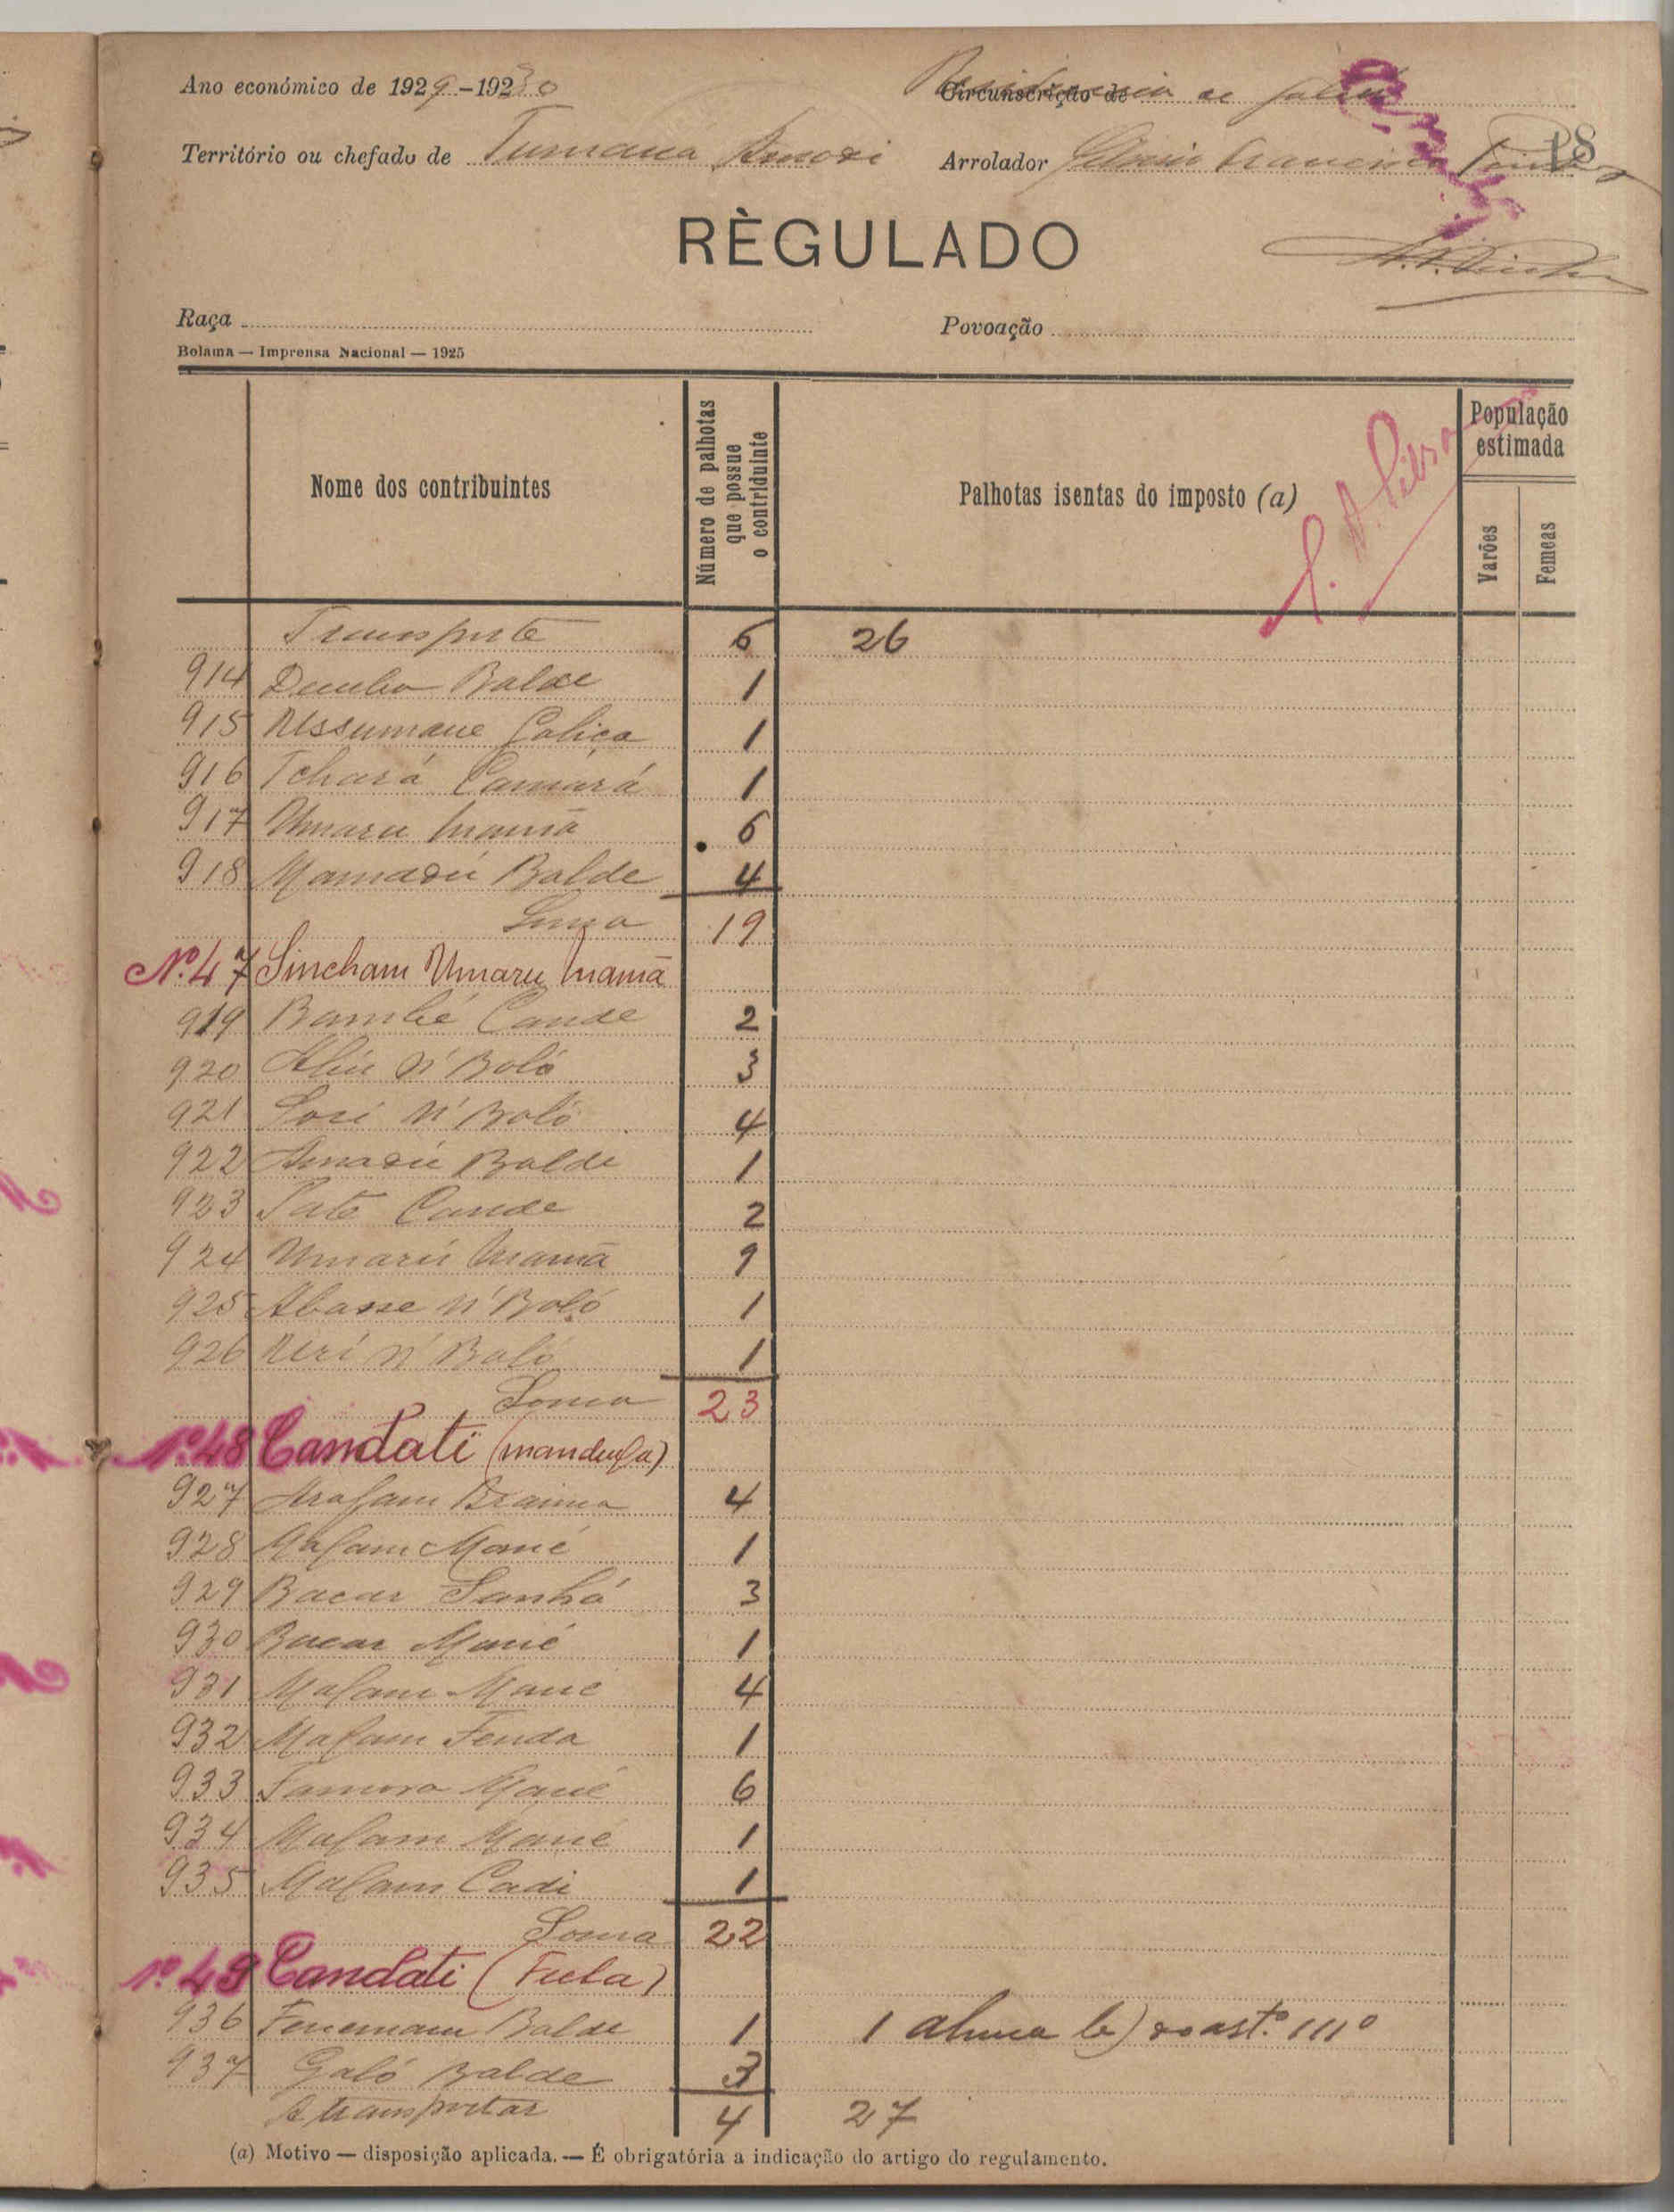 Ano económico de 1929-1930
Circunscrição de
Território ou chefado de Tumana
Arrolador
18
RÈGULADO
Raça
Povoação
Bolama — Imprensa Nacional — 1925
Nome dos contribuintes
Número de palhotas que possue o contriduinte
Palhotas isentas do imposto (a)
População estimada
Varões
Femeas
Transporte 6 26
914 Demba Balde 1
915 Ussumane Galiça 1
916 Tchará Camará 1
917 Umaru Mamã 6
918 Mamadú Balde 4
Soma 19
Nº 47 Sincham Umaru Mamã
919 Bambé Cande 2
920 Aliu N'Boló 3
921 Sori N'Boló 4
922 Amadú Balde 1
923 Pate Cande 2
924 Umarú Mamã 9
925 Abasse N'Boló 1
926 N'Boló 1
Soma 23
Nº 48 Candati (mandinga)
927 Arafam Braima 4
928 Malam Mané 1
929 Bacar Sanhá 3
930 Bacar Mané 1
931 Malam Mané 4
932 Malam Fenda 1
933 Famora Mané 6
934 Malam Mané 1
935 Malam Cadi 1
Soma 22
Nº 49 Candati (Fula)
936 Balde 1 1
937 Galó Balde 3
A transportar 4 27
(a) Motivo — disposição aplicada. — É obrigatória a indicação do artigo do regulamento.